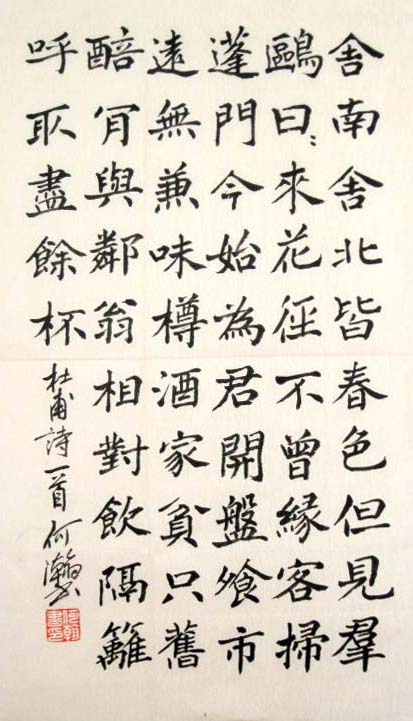 舍南舍北皆春色但見羣
鷗日〻來花徑不曾緣客掃
蓬門今始為君開盤飧市
遠無兼味樽酒家貧只舊
醅肯與鄰翁相對飲隔籬
呼取盡餘杯
杜甫詩一首何